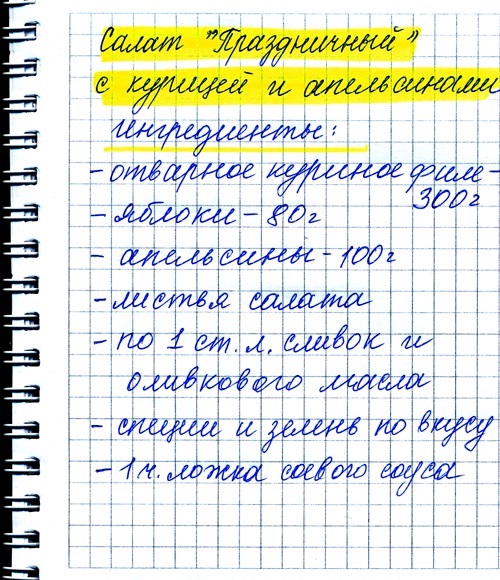 Салат "Праздничный"
с курицей и апельсинами
ингредиенты:
- отварное куриное филе -
300г
- яблоки - 80г
- апельсины - 100г
- листья салата
- по 1 ст. л. сливок и
оливкового масла
- специи и зелень по вкусу
- 1 ч. ложка соевого соуса